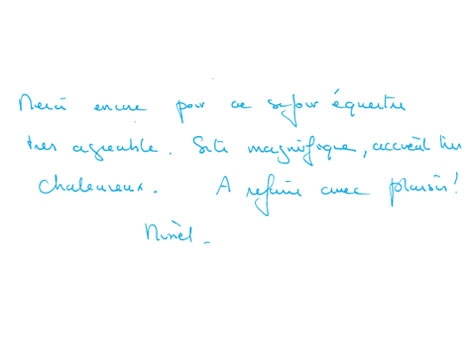 Merci encore pour ce séjour équestre
très agréable. Site magnifique, accueil très
chaleureux. A refaire avec plaisir!